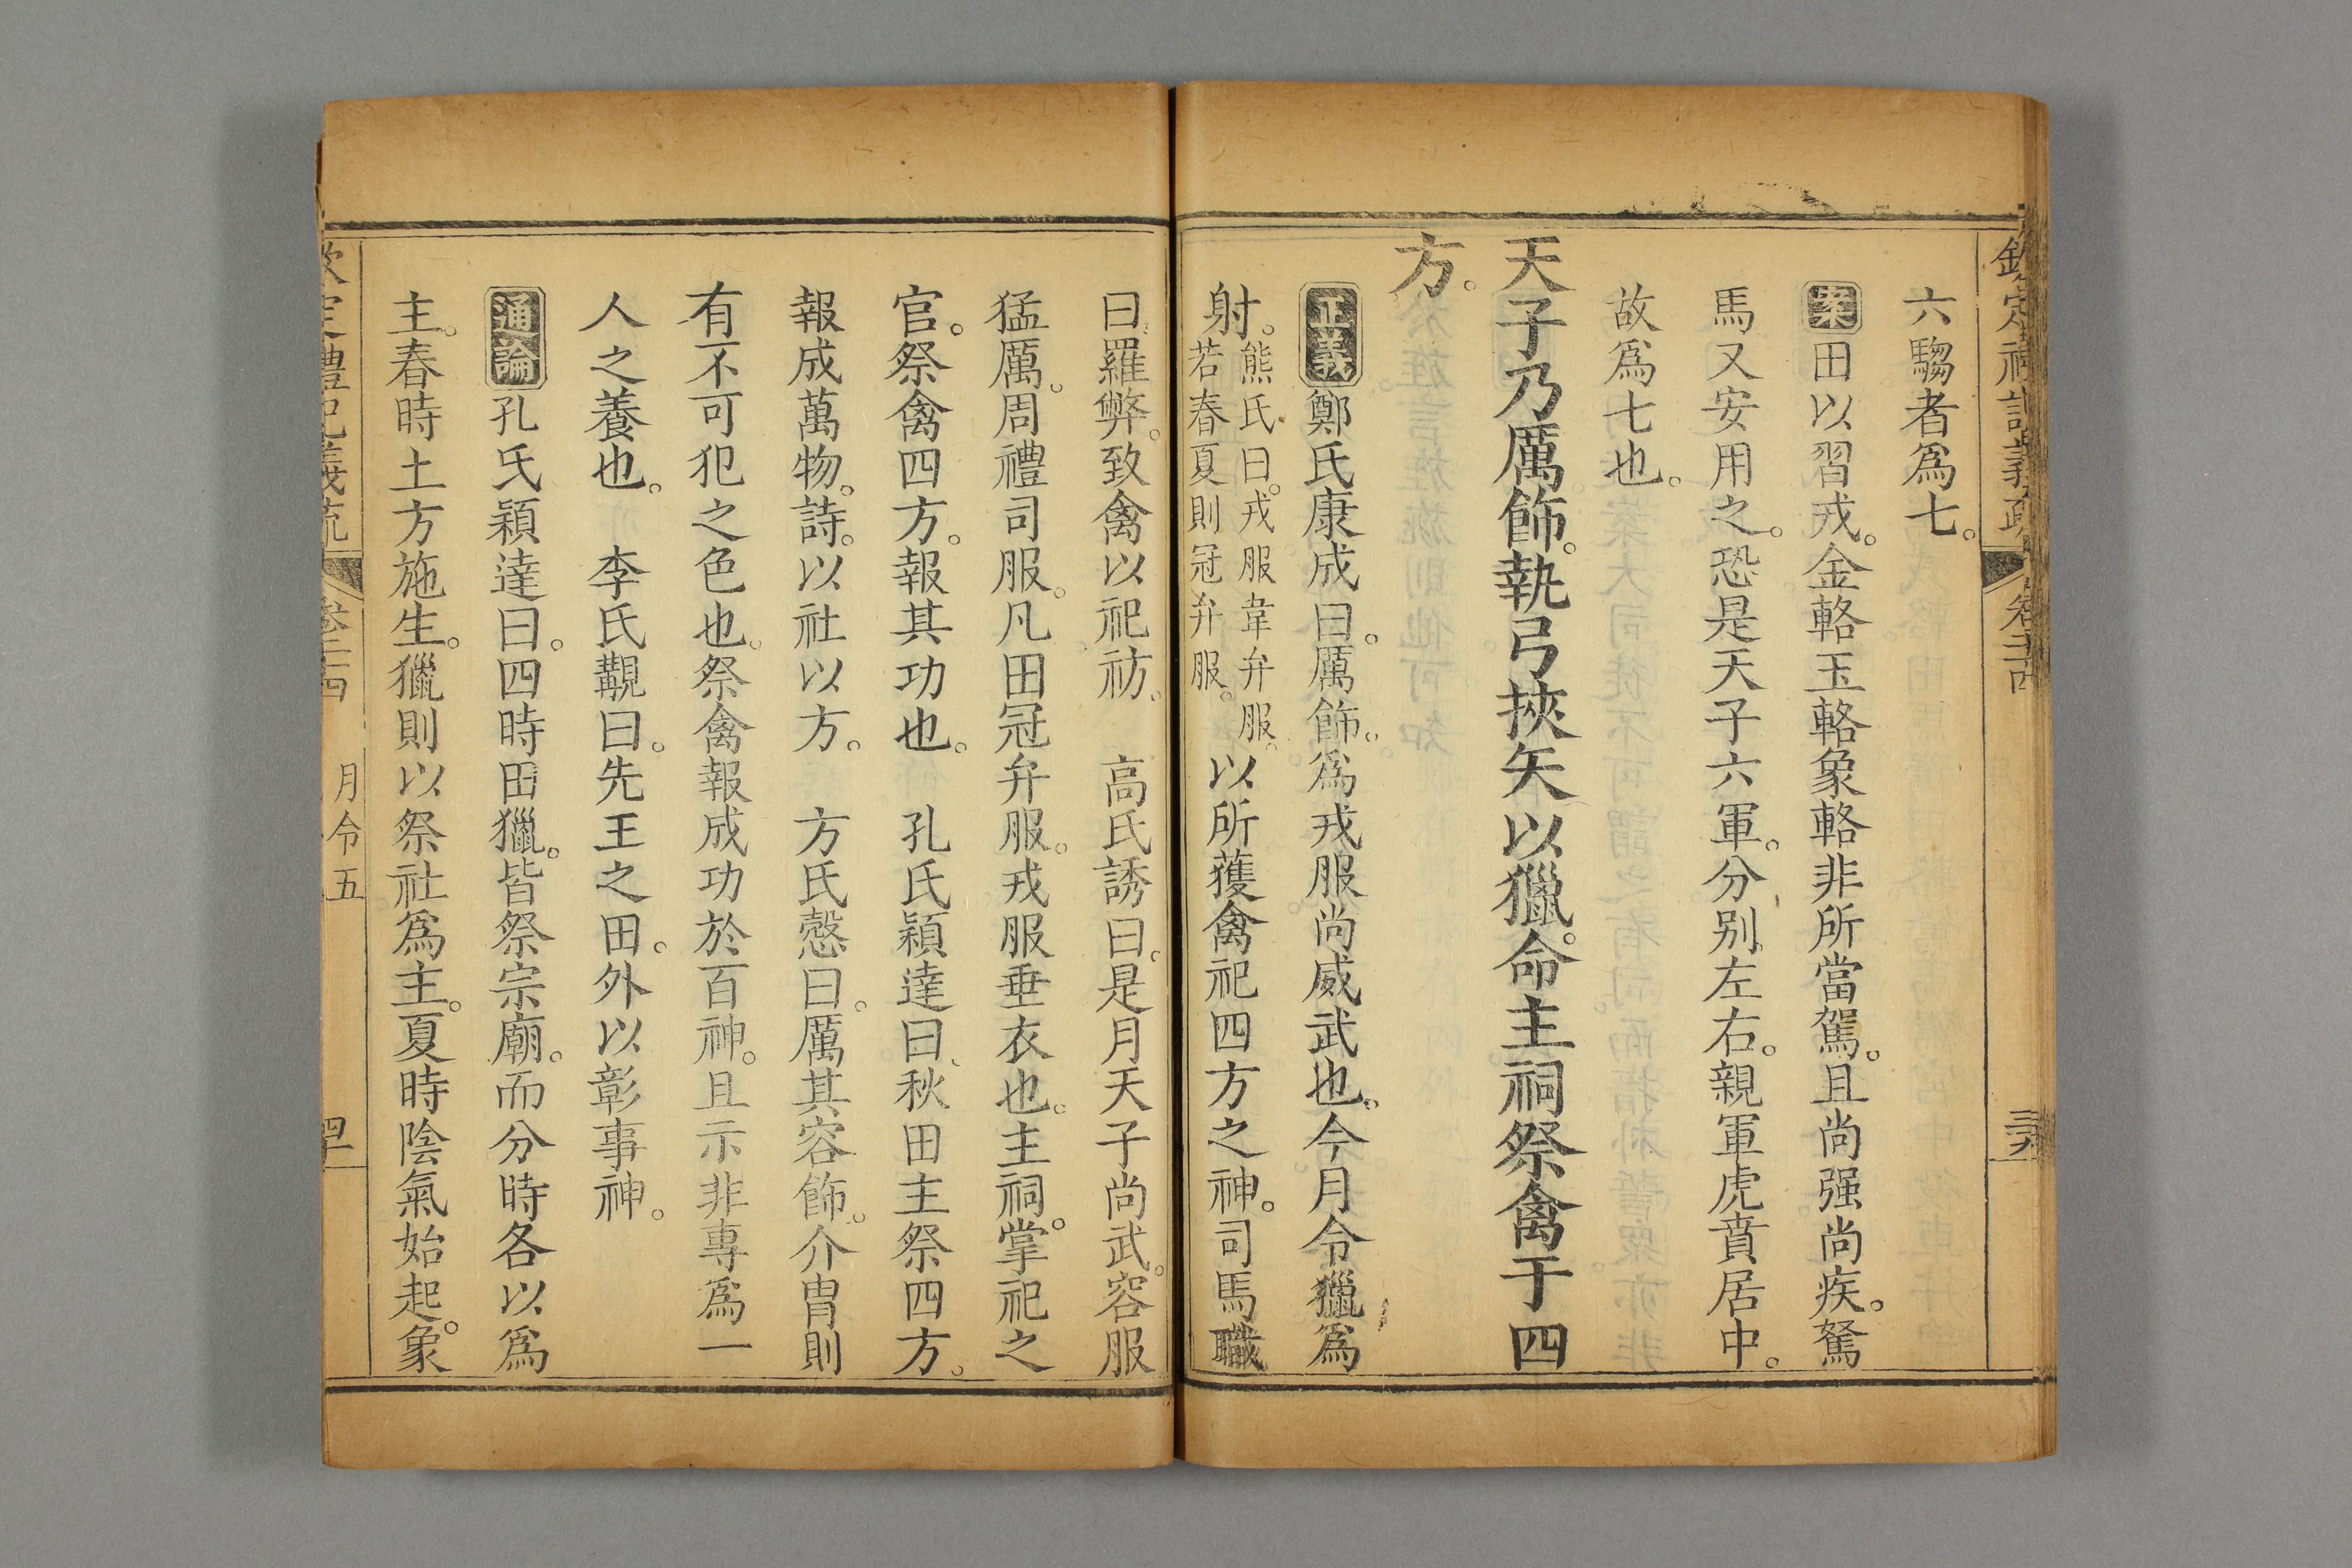 六騶者爲七。
案田以習戎。金輅玉輅象輅非所當駕。且尚强尚疾。駑
馬又安用之。恐是天子六軍。分別左右。親軍虎賁居中。
故爲七也。
天子乃厲飾。執弓挾矢以獵。命主祠祭禽于四
方。
正義鄭氏康成曰。厲飾。爲戎服尚威武也。今月令獵爲
射。熊氏曰。戎服韋弁服。若春夏則冠弁服。以所獲禽祀四方之神。司馬職
曰。羅弊。致禽以祀祊。 高氏誘曰。是月天子尚武。容服
猛厲。周禮司服。凡田冠弁服。戎服垂衣也。主祠。掌祀之
官。祭禽四方。報其功也。 孔氏穎達曰、秋田主祭四方。
報成萬物。詩。以社以方。 方氏慤曰。厲其容飾。介冑則
有不可犯之色也。祭禽報成功於百神。且示非專爲一
人之養也。 李氏覯曰。先王之田。外以彰事神。
通論孔氏穎達曰。四時田獵。皆祭宗廟。而分時各以爲
主。春時土方施生。獵則以祭社爲主。夏時陰氣始起。象
欽定禮記義疏 卷二十四 月令五